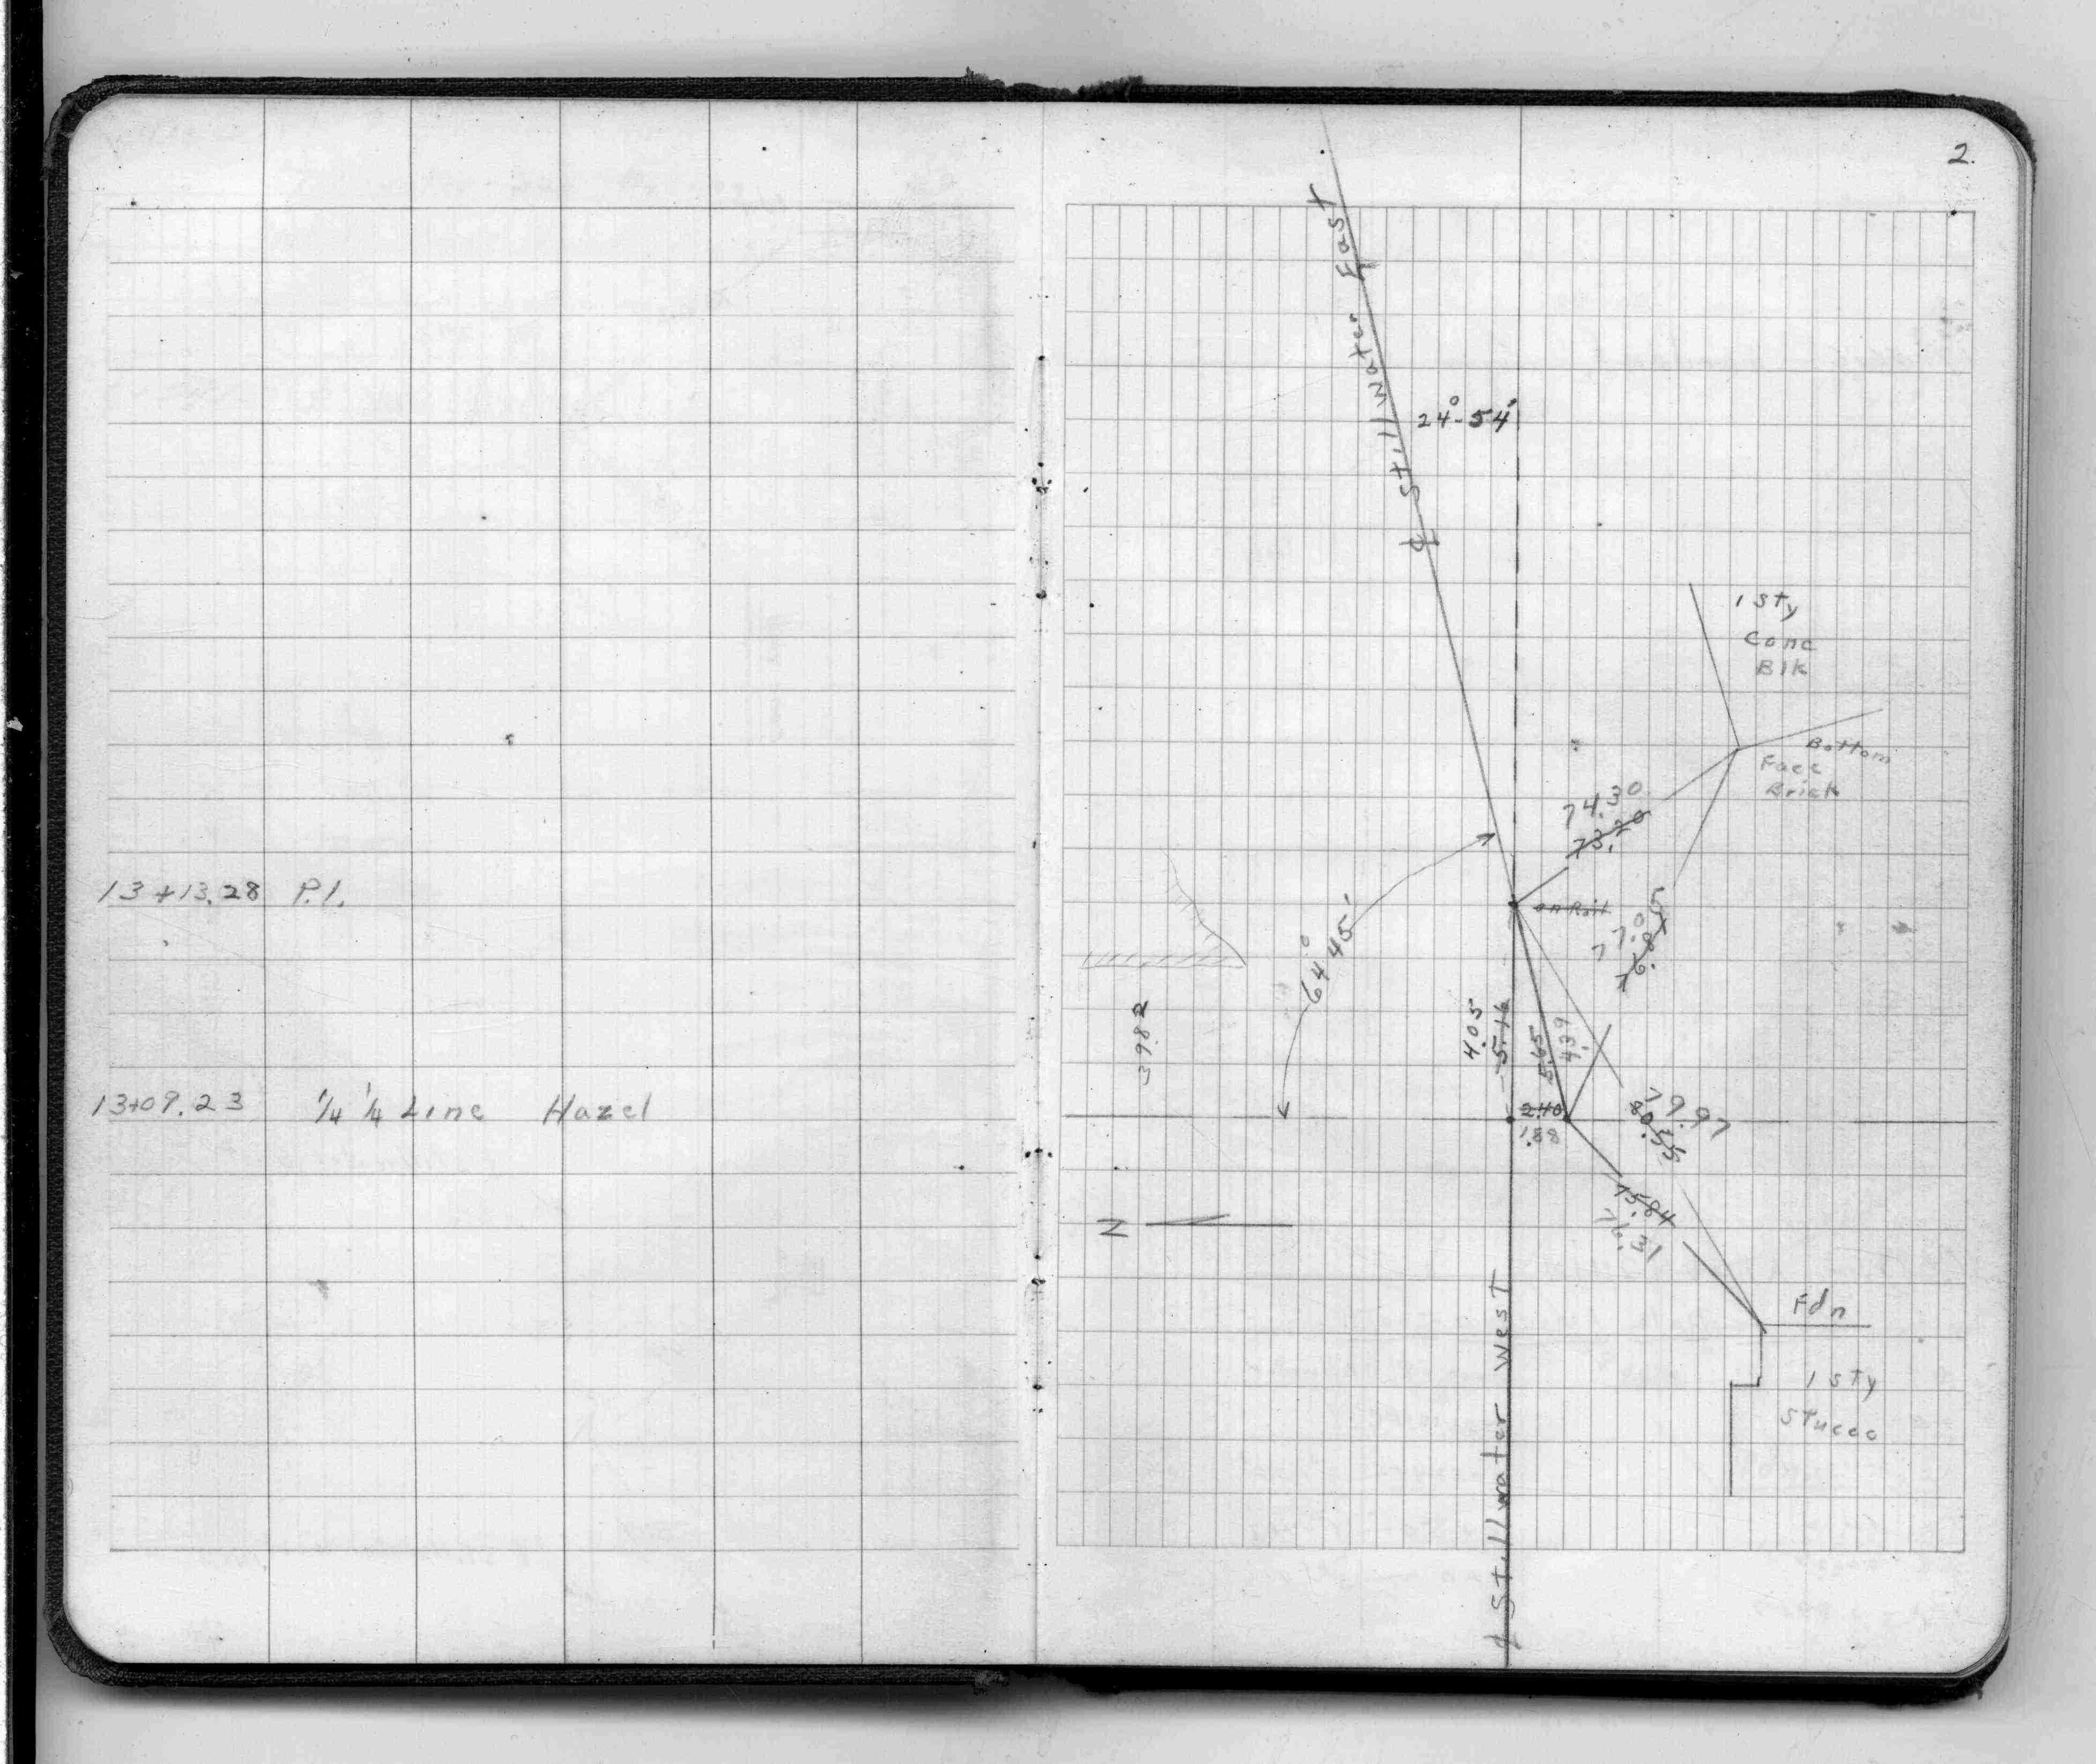 2.
℄ Stillwater East
24°-54'
1 sty
Conc
Blk
Bottom
Face
Brick
74.30
73.20
13+13.28 P.I.
on Rail
77.05
64° 45'
3982
4.05
5.16
5.65
4.39
13+09.23 1/4 1/4 Line Hazel
2.40
1.88
79.97
80.55
75.84
76.31
N
Fdn
1 sty
Stucco
℄ Stillwater West